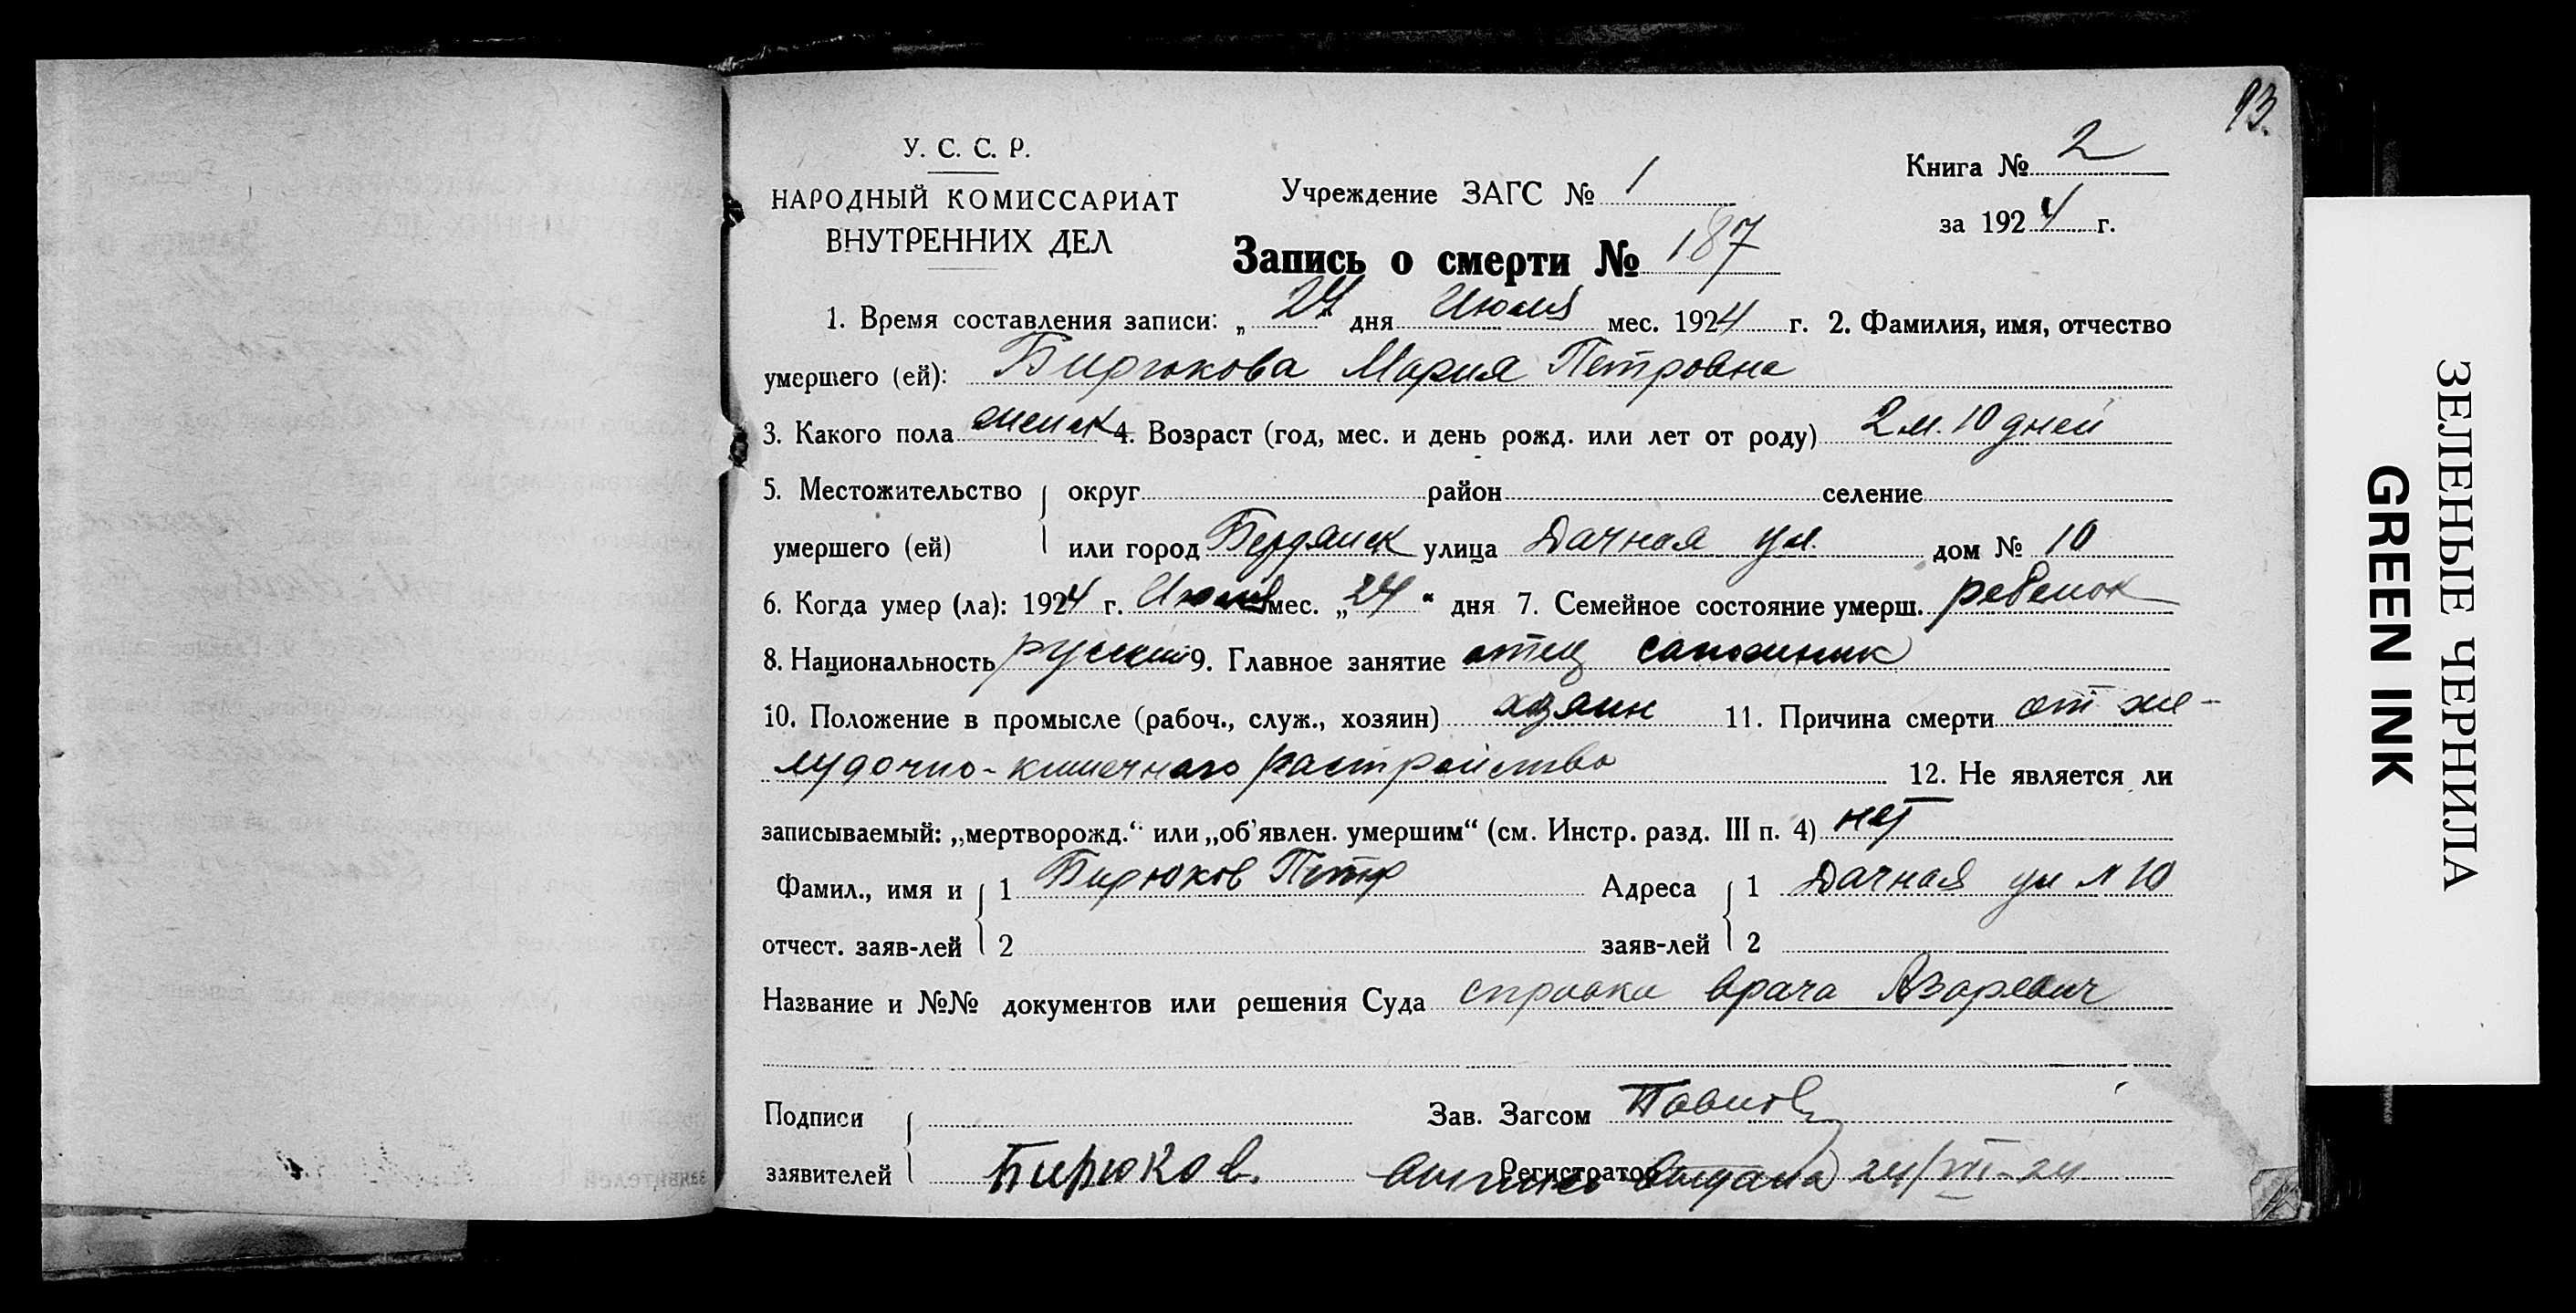 93.
У. С. С. Р.
НАРОДНЫЙ КОМИССАРИАТ
ВНУТРЕННИХ ДЕЛ
Учреждение ЗАГС № 1
Книга № 2
за 1924 г.
Запись о смерти № 187
1. Время составления записи: „24" дня Июля мес. 1924 г. 2. Фамилия, имя, отчество
умершего (ей): Бирюкова Мария Петровна
3. Какого пола женск 4. Возраст (год, мес. и день рожд. или лет от роду) 2 м. 10 дней
5. Местожительство округ район селение
умершего (ей) или город Бердянск улица Дачная ул. дом № 10
6. Когда умер (ла): 1924 г. Июля мес. „24" дня 7. Семейное состояние умерш. ребенок
8. Национальность русский 9. Главное занятие отец сапожник
10. Положение в промысле (рабоч., служ., хозяин) хозяин 11. Причина смерти от же-
лудочно-кишечного растройства 12. Не является ли
записываемый: „мертворожд.“ или „об’явлен. умершим“ (см. Инстр. разд. III п. 4) нет
Фамил., имя и 1 Бирюков Петр Адреса 1 Дачная ул N 10
отчест. заяв-лей 2 заяв-лей 2
Название и №№ документов или решения Суда справка врача Азаревич
Подписи Зав. Загсом
заявителей Бирюков. Регистратор 24/VII-24
ЗЕЛЕНЫЕ ЧЕРНИЛА
GREEN INK